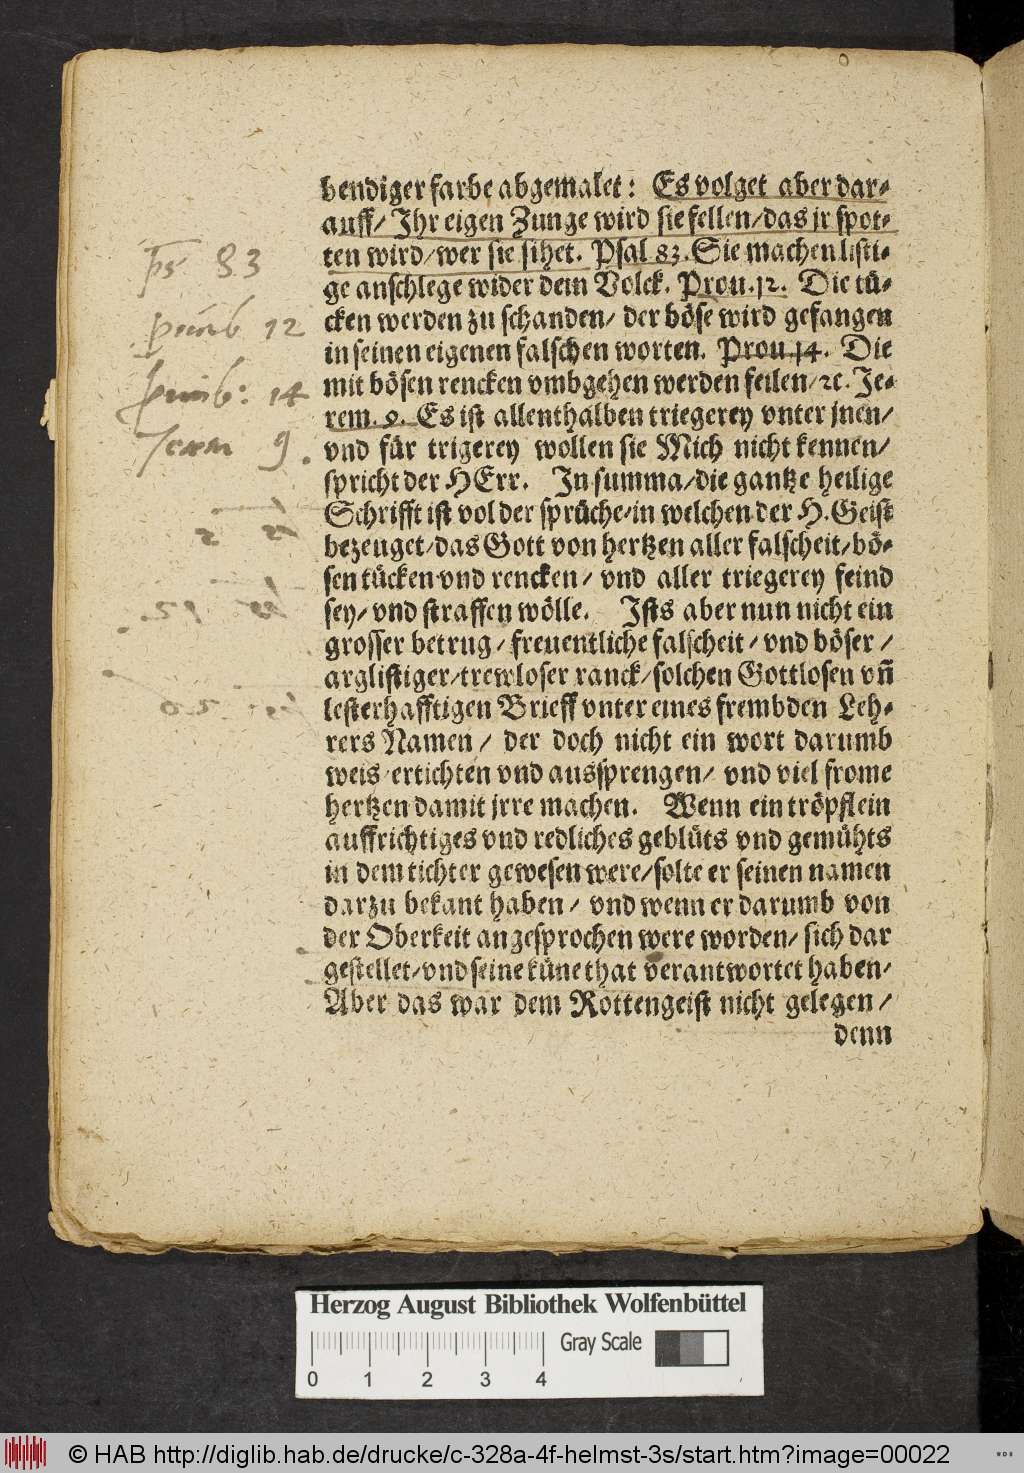 bendiger farbe abgemalet: Es volget aber dar-
auff/ Ihr eigen Zunge wird sie fellen/das jr spot-
ten wird/wer sie sihet. Psal 83. Sie machen listi-
ge anschlege wider dem Volck. Prou. 12. Die tü-
cken werden zu schanden/ der böse wird gefangen
in seinen eigenen falschen worten. Prou 14. Die
mit bösen rencken vmbgehen werden feilen/ ꝛc. Je-
rem. 9. Es ist allenthalben triegerey vnter jnen/
vnd für trigerey wollen sie Mich nicht kennen/
spricht der HErr. In summa/die gantze heilige
Schrifft ist vol der sprüche/in welchen der H. Geist
bezeuget/das Gott von hertzen aller falscheit/bö-
sen tücken vnd rencken/ vnd aller triegerey feind
sey/ vnd straffen wölle. Ists aber nun nicht ein
grosser betrug/ freuentliche falscheit/ vnd böser/
arglistiger/trewloser ranck/solchen Gottlosen vñ
lesterhafftigen Brieff vnter eines frembden Leh-
rers Namen/ der doch nicht ein wort darumb
weis/ertichten vnd aussprengen/ vnd viel frome
hertzen damit jrre machen. Wenn ein tröpflein
auffrichtiges vnd redliches geblüts vnd gemühts
in dem tichter gewesen were/solte er seinen namen
darzu bekant haben/ vnd wenn er darumb von
der Oberkeit angesprochen were worden/ sich dar
gestellet/vnd seine küne that verantwortet haben/
Aber das war dem Rottengeist nicht gelegen/
denn
ps 83
prouerb 12
prouerb: 14
Jerem 9.
Herzog August Bibliothek Wolfenbüttel
Gray Scale
0 1 2 3 4
© HAB http://diglib.hab.de/drucke/c-328a-4f-helmst-3s/start.htm?image=00022